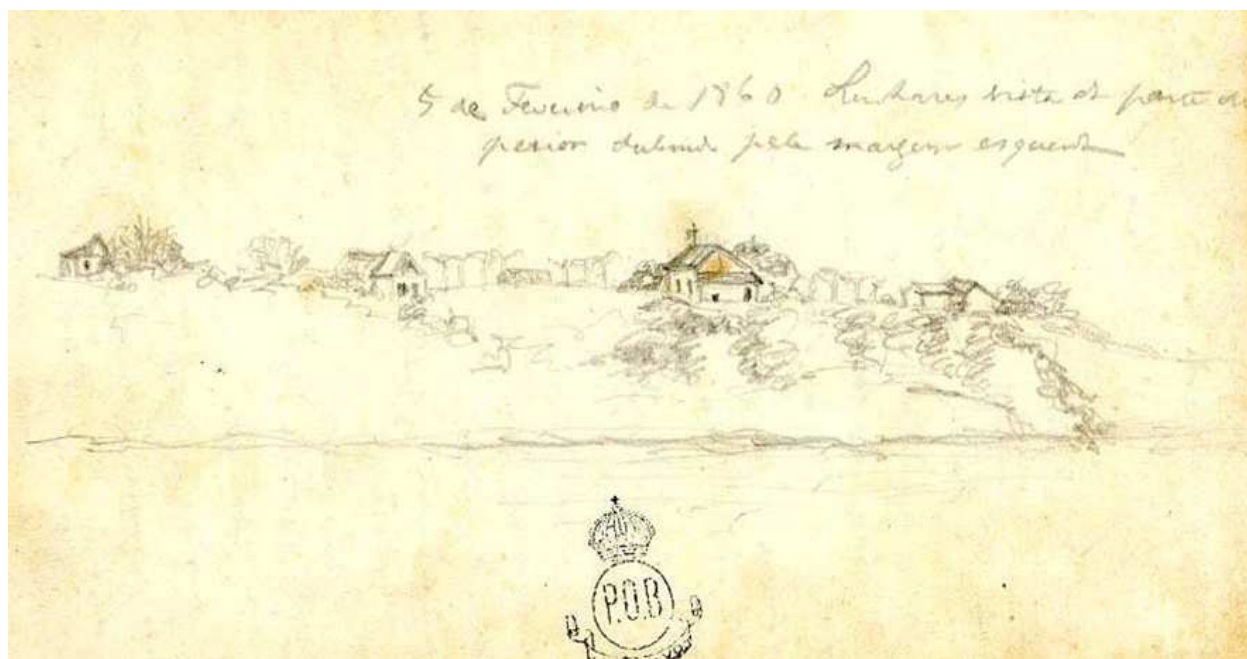 5 de Fevereiro de 1860 Linhares vista da parte
perior subindo pela margem esquerda
P.O.B